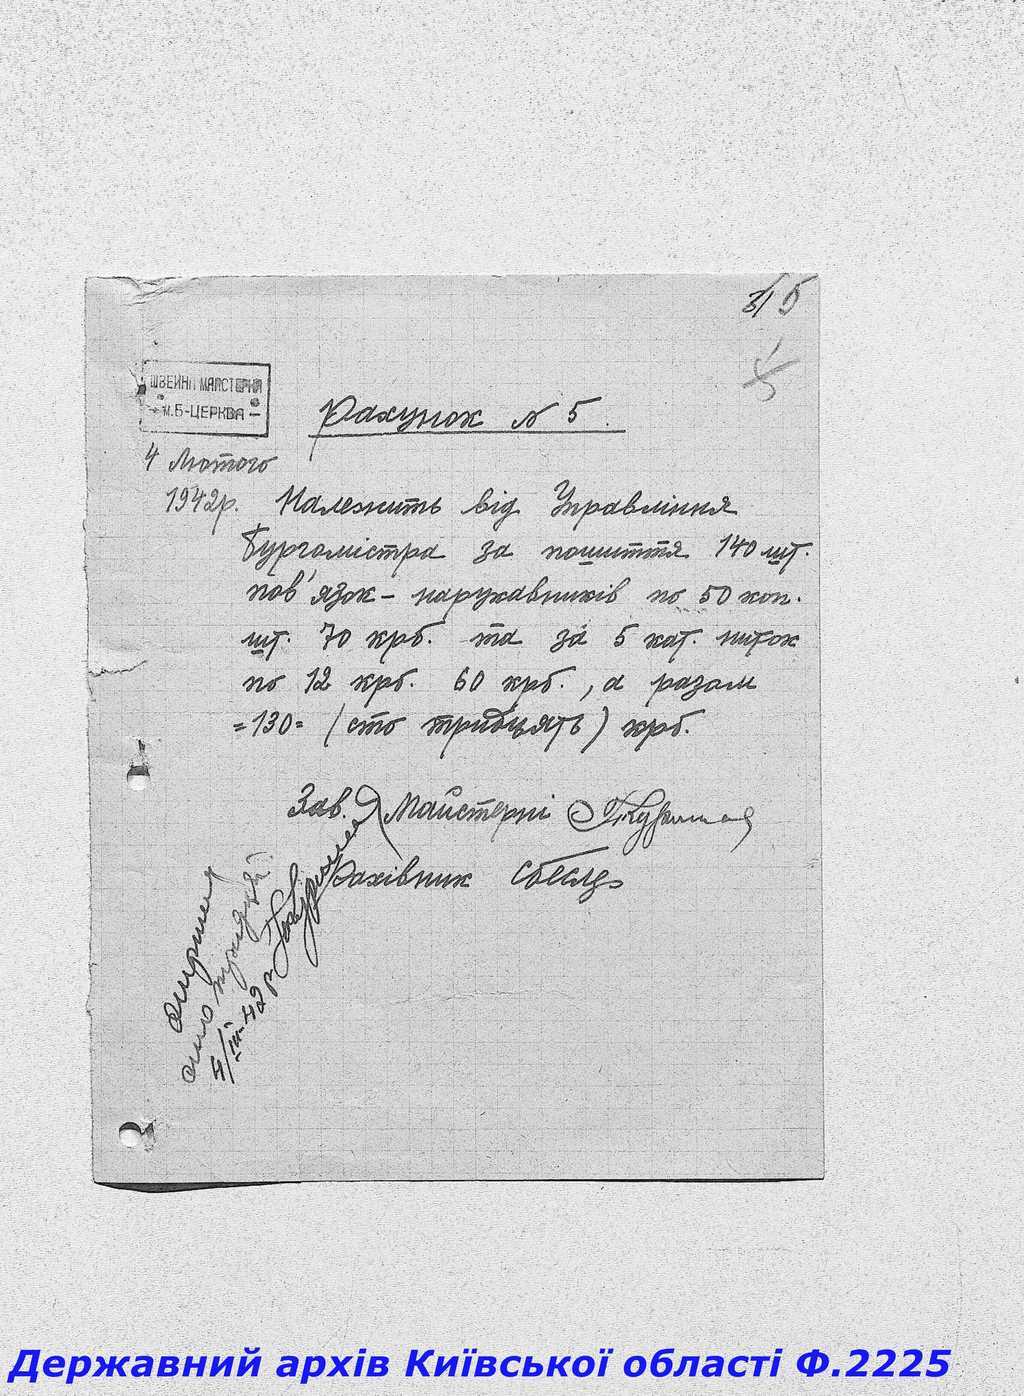 31 5
5
ШВЕЙНА МАЙСТЕРНЯ
м.Б-ЦЕРКВА
Рахунок № 5.
4 Лютого
1942р. Належить від Управління
Бургомістра за пошиття 140 шт.
пов'язок - наружавників по 50 коп.
шт. 70 крб. та за 5 кат. ниток
по 12 крб. 60 крб., а разом
=130= (сто тридцять) крб.
Зав. Майстерні
Рахівник
сто тридцять
4/III-42 р.
Державний архів Київської області Ф.2225